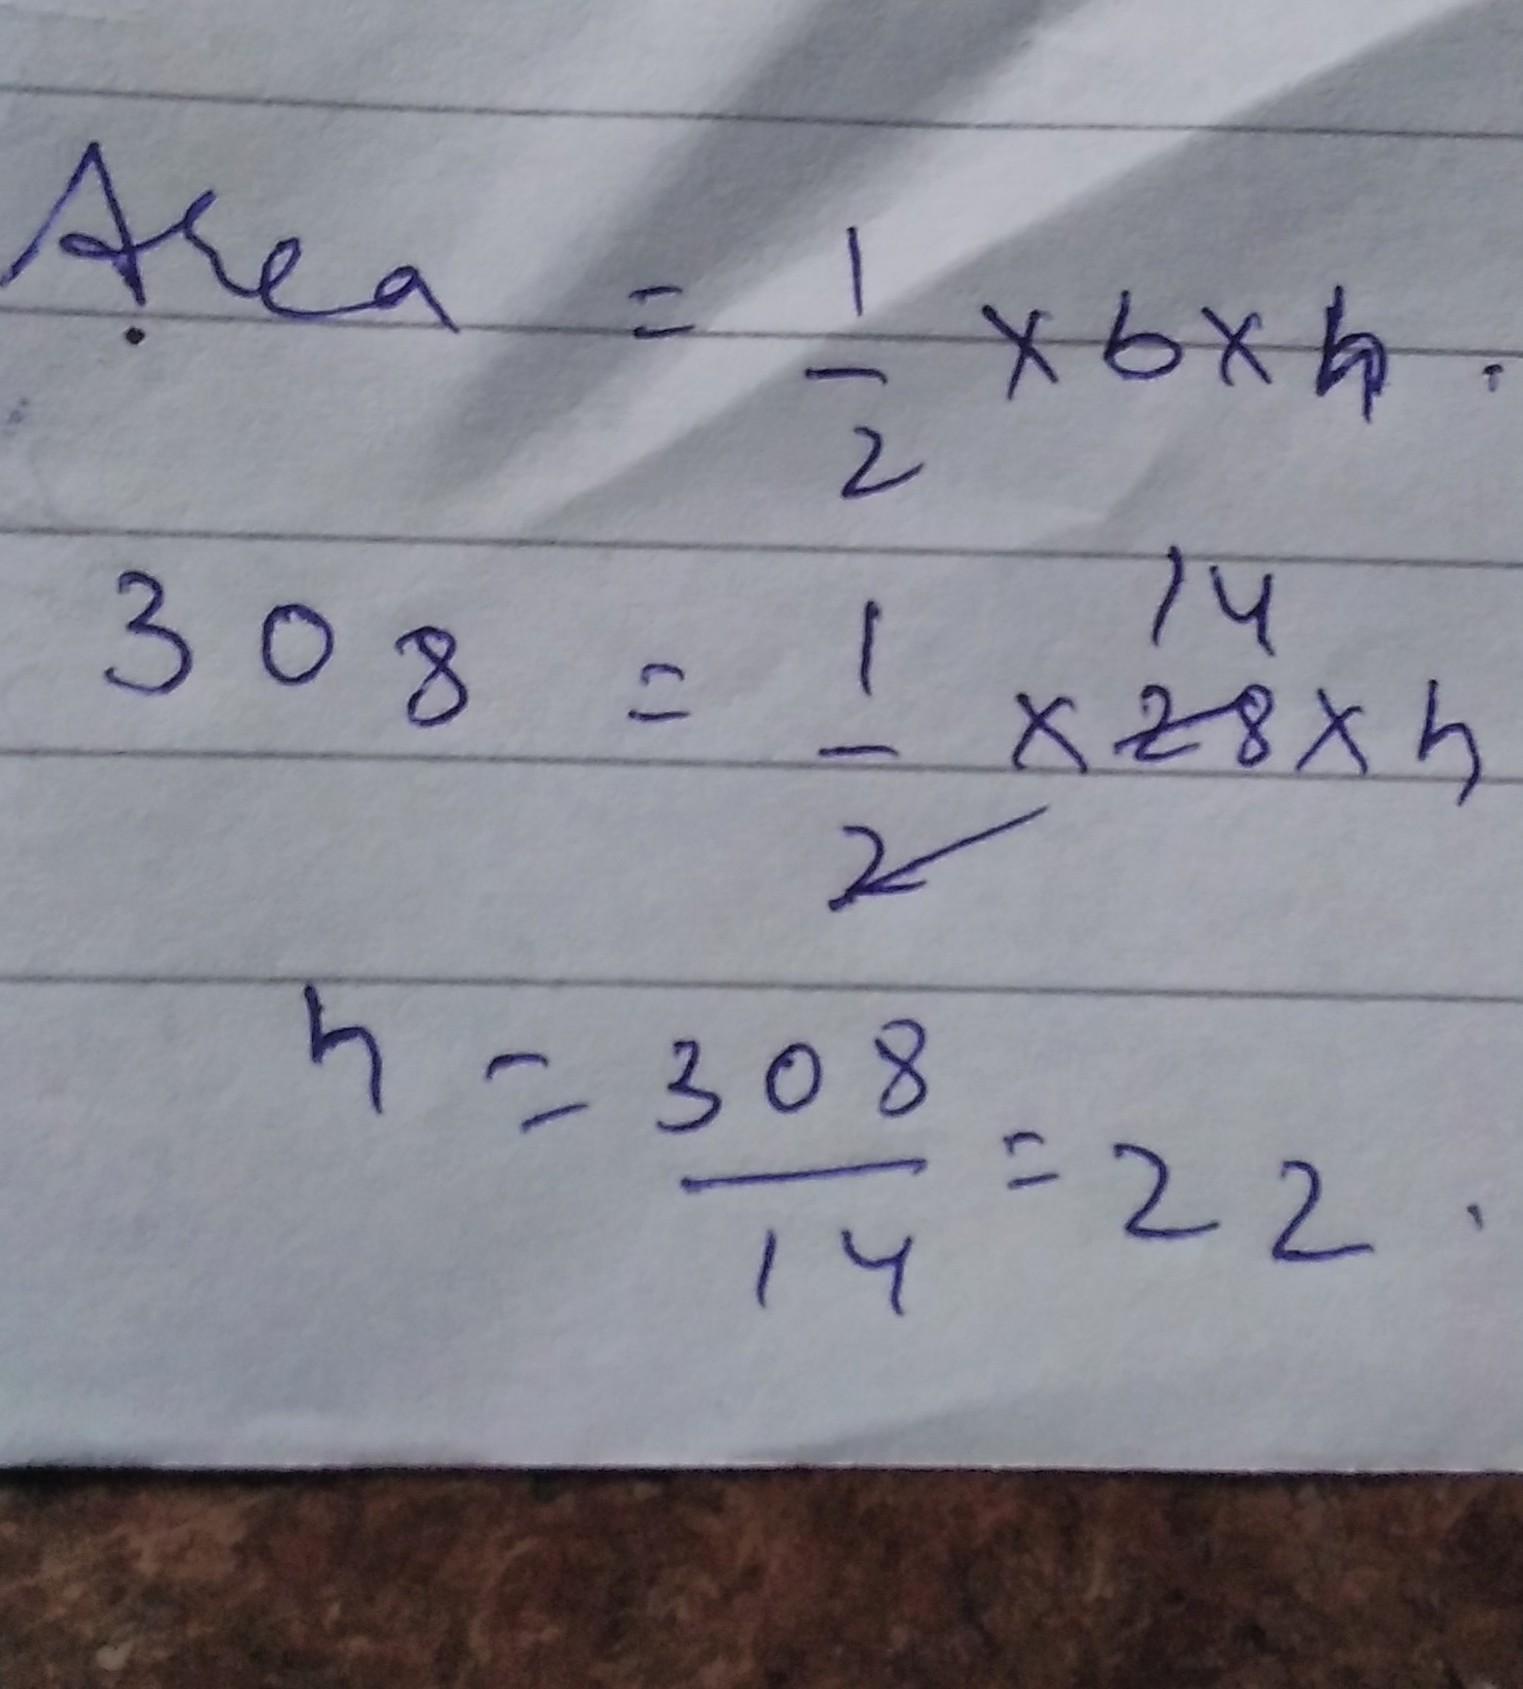 Area = 1/2 × b × h.
308 = 1/2 × 28 × h 14
h = 308/14 = 22.